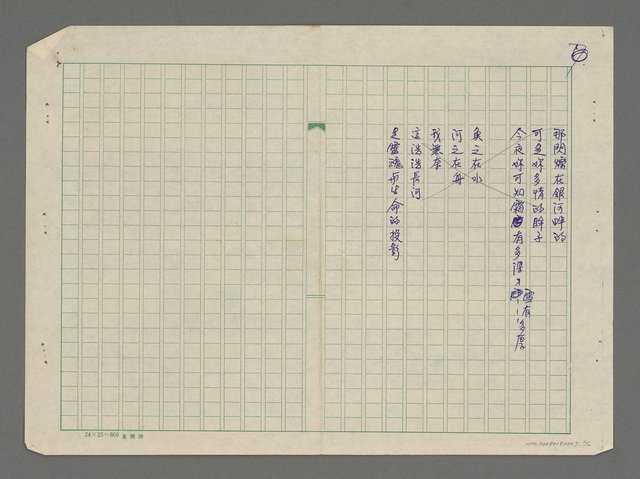 那閃爍在銀河畔的
可是妳多情的眸子
今夜妳可知霜有多深，雲有多厚
魚之在水
河之在舟
我無奈
這浩浩長河
是靈魂與生命的投影
24×25=600